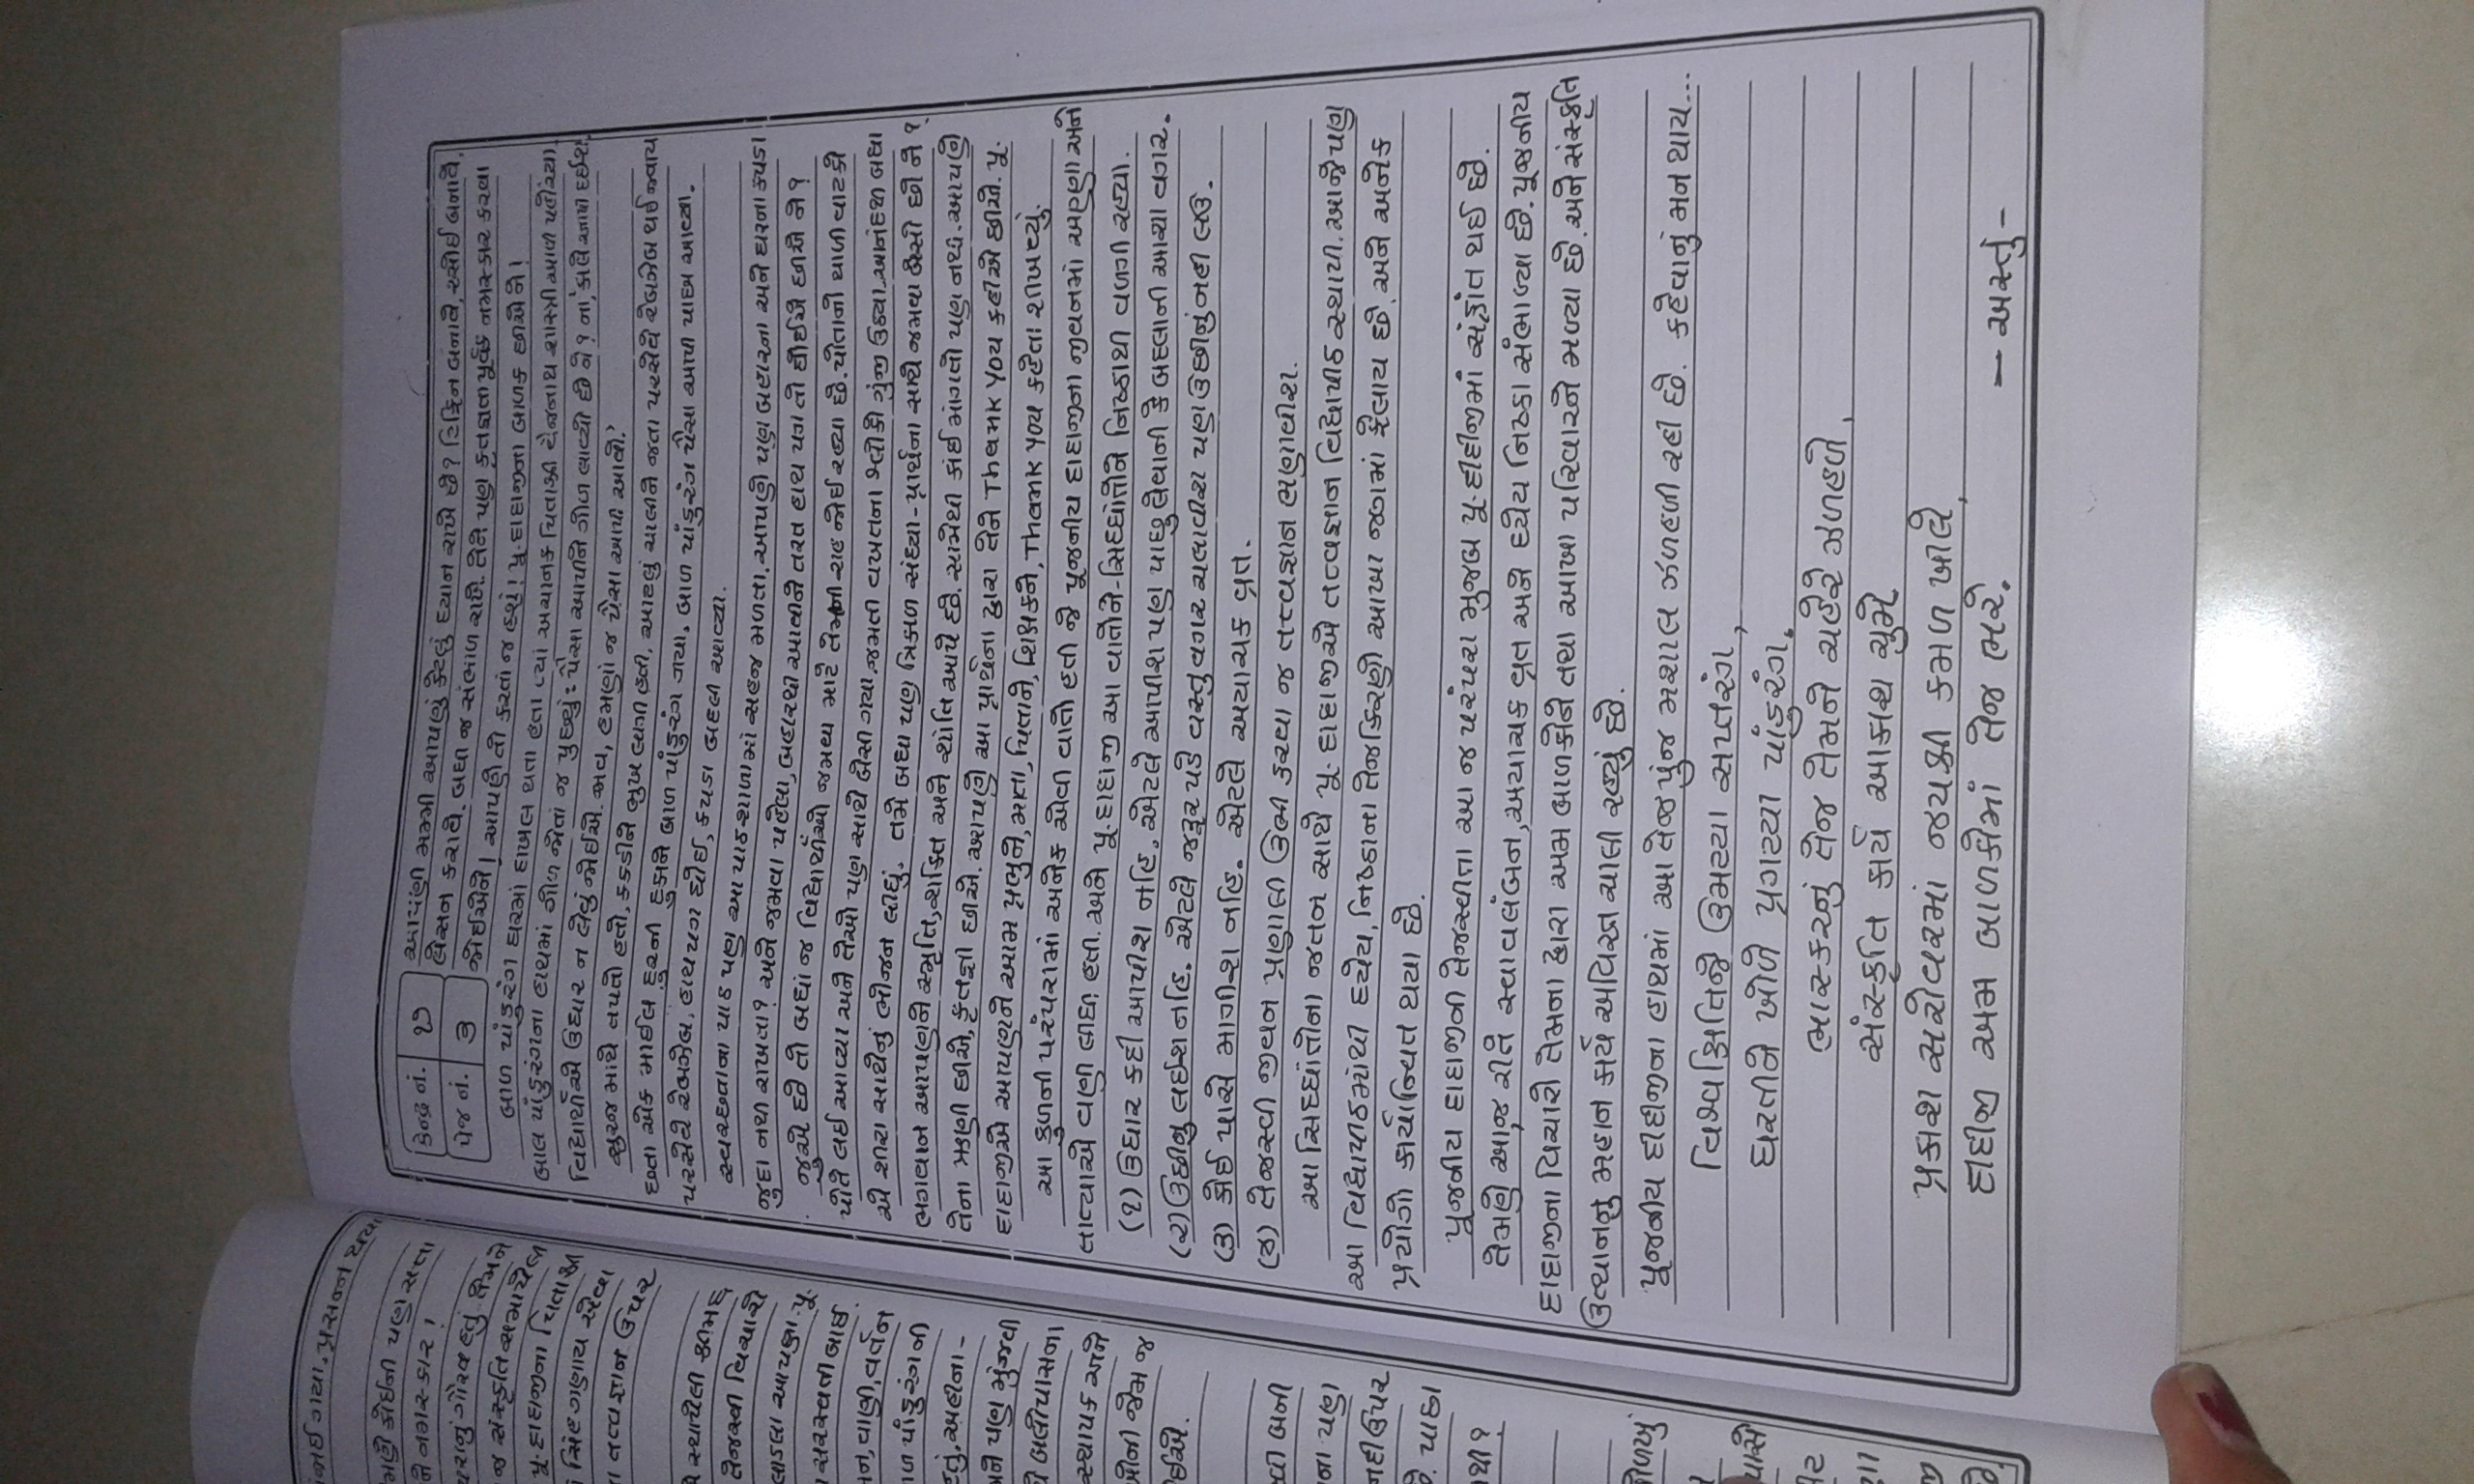 ંજાઈ ગયા. પ્રસન્ન થયા
મણે કોઈની પણ સત્તા
ને નમસ્કાર!
પરાનું ગૌરવ હતું તેમને
જ સંસ્કૃતિ સમાયેલી
પૂ. દાદાજીના પિતાશ્રી
સિંહ ગણાય એવા
તત્વજ્ઞાન ઉપર
સ્થાપેલી શ્રીમદ્
તેજસ્વી વિચારો
લાડલા આપણા પૂ.
સરસ્વતી બાઈ
મન, વાણી, વર્તન
પાંડુરંગ ની
હતું. અહીના-
ને પણ મુંજવી
બલીપાસના
સ્થાપક અને
ની જેમ જ
ઈએ.
બની
ના પણ
નદી ઉપર
છે. પાછા
થી?
ઓળખું
પાસે
કેન્દ્ર નં. ૧૭
પેજ નં. ૩
આપણી મમ્મી આપણું કેટલું ધ્યાન રાખે છે? ટિફિન બનાવે, રસોઈ બનાવે,
લેસન કરાવે. બધી જ સંભાળ રાખે. તેને પણ કૃતજ્ઞતા પૂર્વક નમસ્કાર કરવા
જોઈએને! આપણે તો કરતાં જ હશું! પૂ. દાદાજીના બાળક છીએ ને!
બાળ પાંડુરંગ ઘરમાં દાખલ થતા હતા ત્યાં અચાનક પિતાશ્રી વૈજનાથ શાસ્ત્રી આવી પહોંચ્યા.
બાલ પાંડુરંગના હાથમાં ગોળ જોતાં જ પુછ્યું: પૈસા આપીને ગોળ લાવ્યો છે ને? ના, 'કાલે આપી દઈશ.
વિદ્યાર્થીએ ઉધાર ન લેવું જોઈએ. જાવ, હમણાં જ પૈસા આપી આવો.'
સુરજ માથે તપતો હતો, કકડીને ભુખ લાગી હતી, આટલું ચાલીને જતા પરસેવે રેબઝેબ થઈ જવાય
છતા એક માઈલ દુરની દુકાને બાળ પાંડુરંગ ગયા. બાળ પાંડુરંગ પૈસા આપી પાછા આવ્યા.
પરસેવે રેબઝેબ, હાથપગ ધોઈ, કપડા બદલી આવ્યા.
સ્વચ્છતાના પાઠ પણ આ પાઠશાળામાં સહજ મળતા. આપણે પણ બહારના અને ઘરના કપડા
જુદા નથી રાખતા? અને જમવા પહેલા, બહારથી આવીને તરત હાથ પગ તો ધોઈએ છીએ ને?
જુએ છે તો બધાં જ વિદ્યાર્થીઓ જમવા માટે તેમની રાહ જોઈ રહ્યા છે. પોતાનો થાળી વાટકો
પોતે લઈ આવ્યા અને તેઓ પણ સાથે બેસી ગયા. જમતી વખતના શ્લોકો ગુંજી ઉઠ્યા. આનંદથી બધા
એ શીરા સાથેનું ભોજન લીધું. તમે બધા પણ ત્રિકાળ સંધ્યા-પ્રાર્થના સાથે જમવા બેસો છો ને?
ભગવાન આપણને સ્મૃતિ, શક્તિ અને શાંતિ આપે છે. સામેથી કાંઈ માંગતો પણ નથી. આપણે
તેના ઋણી છીએ, કૃતજ્ઞી છીએ. આપણે આ પ્રાર્થના દ્વારા તેને Thank You કહીએ છીએ. પૂ.
દાદાજીએ આપણને આમ પ્રભુને, માતા, પિતાને, શિક્ષકને, Thank You કહેતા શીખવ્યું.
આ કુળની પરંપરામાં અનેક એવી વાતો હતી જે પૂજનીય દાદાજીના જીવનમાં અણ્ણા અને
તાત્યાએ વણી લીધી હતી. અને પૂ. દાદાજી આ વાતોને-સિદ્ધાંતોને નિષ્ઠાથી વળગી રહ્યા.
(૧) ઉધાર કદી આપીશ નહિ. એટલે આપીશ પણ પાછુ લેવાની કે બદલાની આશા વગર.
(૨) ઉછીનુ લઈશ નહિ. એટલે જરૂર પડે વસ્તુ વગર ચલાવીશ પણ ઉછીનું નહી લઉ.
(૩) કોઈ પાસે માગીશ નહિ. એટલે અયાચક વ્રત.
(૪) તેજસ્વી જીવન પ્રણાલી ઉભી કરવા જ તત્ત્વજ્ઞાન ભણાવીશ.
આ સિદ્ધાંતોના જતન સાથે પૂ. દાદાજીએ તત્વજ્ઞાન વિદ્યાપીઠ સ્થાપી. આજે પણ
આ વિદ્યાપીઠમાંથી ધ્યેય, નિષ્ઠાના તેજકિરણો આખા જગમાં ફેલાય છે. અને અનેક
પ્રયોગો કાર્યાન્વિત થયા છે.
પૂજનીય દાદાજીની તેજસ્વીતા આ જ પરંપરા મુજબ પૂ. દીદીજીમાં સંક્રાંત થઈ છે.
તેમણે આજ રીતે સ્વાવલંબન, અયાચક વ્રત અને ધ્યેય નિષ્ઠા સંભાળ્યા છે. પૂજનીય
દાદાજીના વિચારો તેમના દ્વારા અમ બાળકોને તથા આખા પરિવારને મળ્યા છે. અને સંસ્કૃતિ
ઉત્થાનનુ મહાન કાર્ય અવિરત ચાલી રહ્યું છે.
પૂજનીય દીદીજીના હાથમાં આ તેજપુંજ મશાલ ઝળહળી રહી છે. કહેવાનું મન થાય...
વિશ્વક્ષિતિજે ઉમટ્યા સપ્તરંગ,
ધરતીને ખોળે પ્રગટ્યા પાંડુરંગ.
ભાસ્કરનું તેજ તેમને ચહેરે ઝળહળે,
સંસ્કૃતિ કાર્ય આકાશ ચુમે
પ્રકાશ સરોવરમાં જયશ્રી કમળ ખીલે,
દીદીજી અમ બાળકોમાં તેજ ભરે. - અસ્તું -